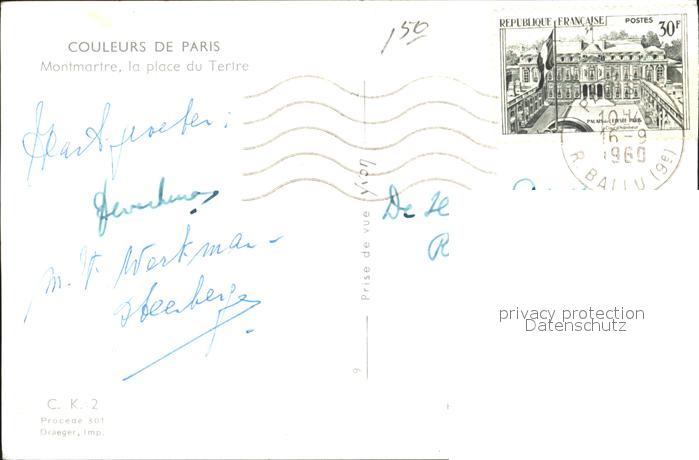 1.50
REPUBLIQUE FRANÇAISE POSTES 30F
COULEURS DE PARIS
Montmartre, la place du Tertre
PALAIS de l'ELYSÉE PARIS
10H
15-9
1960
R. BALLU (9e)
De He
R
M. V. Werkman-
Steenberge
Prise de vue Loïy
privacy protection
Datenschutz
C. K. 2
Procédé 301
Draeger, Imp.